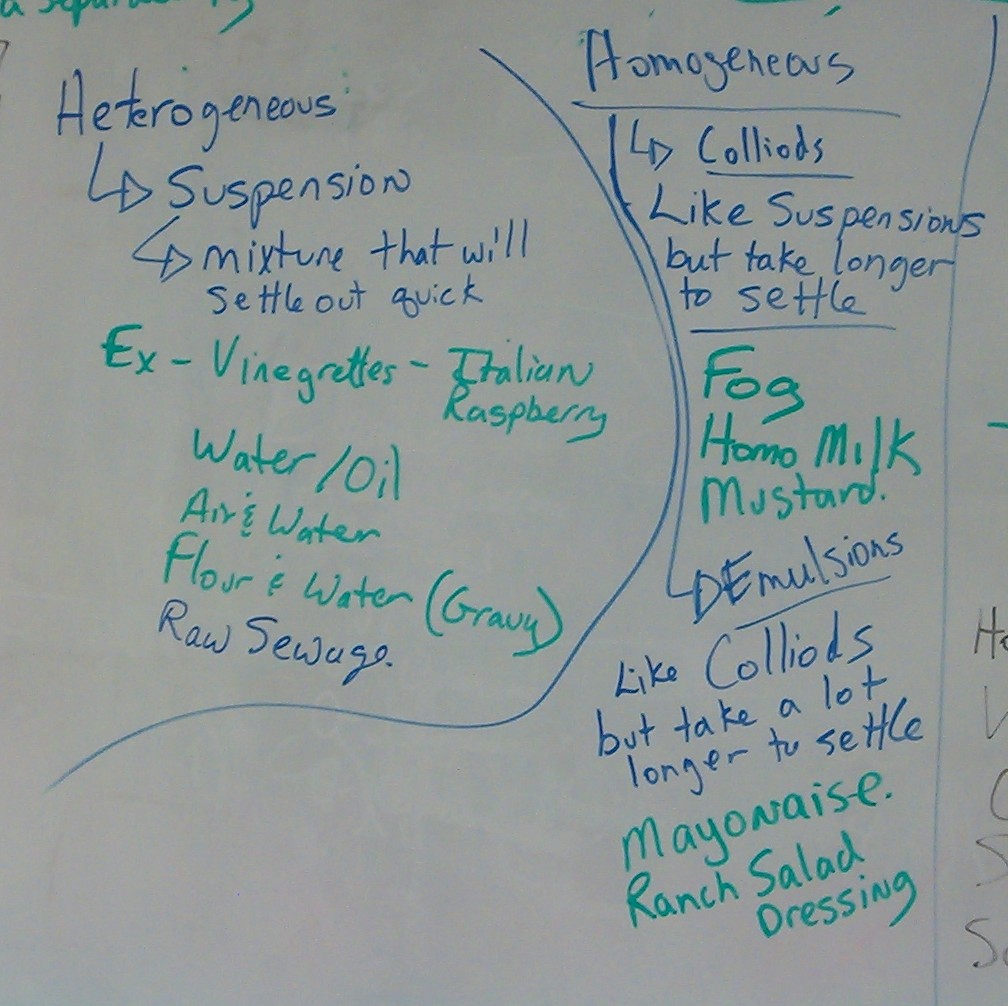 a separ
Heterogeneous
Suspension
mixture that will
settle out quick
Ex - Vinegrettes - Italian
Raspberry
Water/Oil
Air & Water
Flour & Water (Gravy)
Raw Sewage.
Homogeneous
Colliods
Like Suspensions
but take longer
to settle
Fog
Homo Milk
Mustard.
Emulsions
Like Colliods
but take a lot
longer to settle
Mayonaise.
Ranch Salad
Dressing